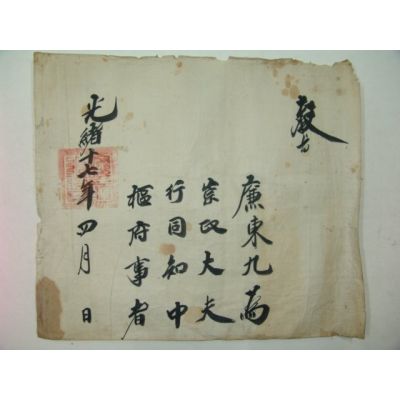 敎旨
廉東九爲
崇政大夫
行同知中
樞府事者
光緒十七年四月 日